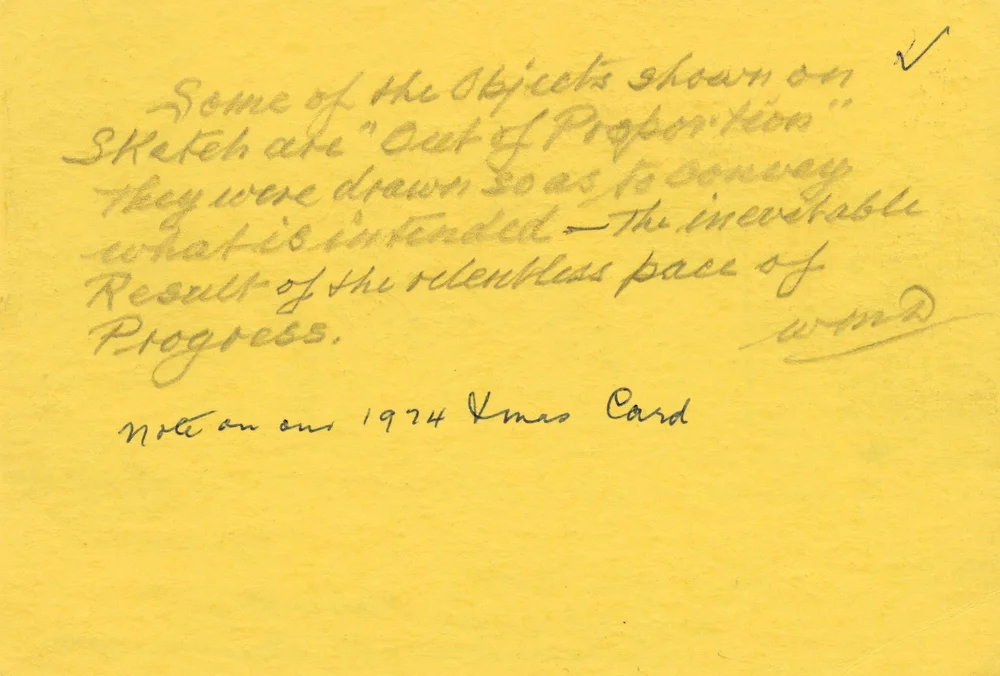 Some of the Objects shown on
Sketch are "Out of Proportion"
They were drawn so as to convey
what is intended - The inevitable
Result of the relentless pace of
Progress.
WMD
Note on our 1974 Xmas Card